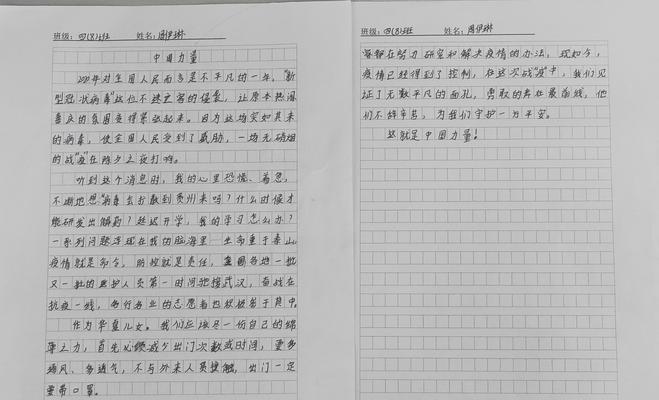 班级：四(8)班 姓名：周伊琳
中国力量
2020年对全国人民而言是不平凡的一年，"新
型冠状病毒"这位不速之客的侵袭，让原本热闹
喜庆的氛围变得紧张起来。因为这场突如其来
的病毒，使全国人民受到了威胁，一场无硝烟
的战"疫"在除夕之夜打响。
听到这个消息时，我的心里恐慌、着急，
不断地想"病毒会扩散到贵州来吗？什么时候才
能研发出解药？延迟开学，我的学习怎么办？"
一系列问题浮现在我的脑海里。生命重于泰山
疫情就是命令，防控就是责任，全国各地一批
又一批的医护人员第一时间驰援武汉，奋战在
抗疫一线，各行各业的志愿者也积极参于其中。
作为华夏儿女。我们应该尽一份自己的绵
薄之力，首先必须减少出门次数或时间，要多
通风、多透气，不与外来人员接触，出门一定
要带口罩。
班级：四(8)班 姓名：周伊琳
都在努力研究和解决疫情的办法，现如今，
疫情已经得到了控制，在这次战"疫"中，我们见
证了无数平凡的面孔，勇敢的奔在最前线，他
们不辞辛苦，为我们守护一方平安。
这就是中国力量！